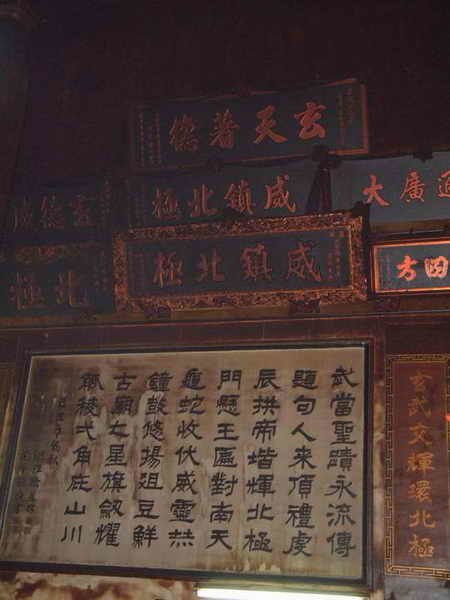 玄天著德
威鎮北極
通廣大
玄德
威鎮北極
北極
四方
武當聖蹟永流傳
題句人來頂禮虔
辰拱帝堦輝北極
門懸玉匾對南天
龜蛇收伏威靈赫
鐘鼓悠揚俎豆鮮
古廟七星旗劔耀
觚稜弌角庇山川
玄武文輝環北極